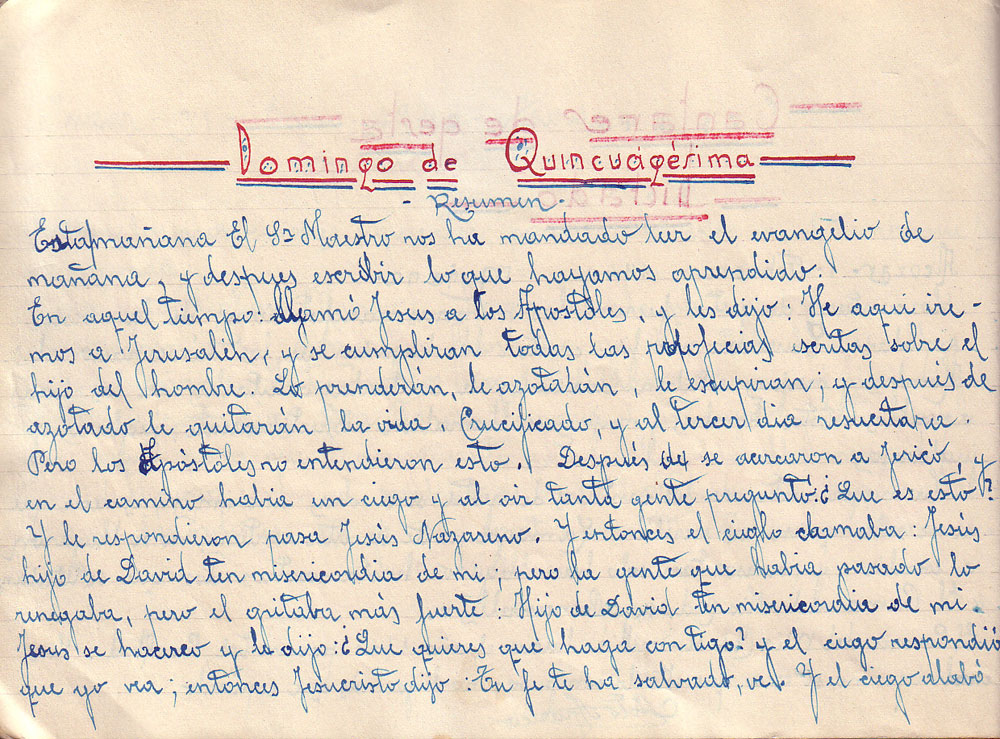 Domingo de Quincuagésima
- Resumen -
Estamañana El Sr Maestro nos ha mandado leer el evangelio de
mañana, y despues escribir lo que hayamos aprendido.
En aquel tiempo: llamó Jesus a los Apostoles, y les dijo: He aqui ire-
mos a Jerusalén, y se cumpliran todas las profecias escritas sobre el
hijo del hombre. Lo prenderán, le azotarán, le escupiran; y después de
azotado le quitarán la vida. Crucificado, y al tercer dia resucitara.
Pero los Apóstoles no entendieron esto. Después de se acercaron a Jericó, y
en el camino habia un ciego y al oir tanta gente preguntó: ¿Que es esto?
Y le respondieron pasa Jesús Nazareno. Y entonces el cieglo clamaba: Jesús
hijo de David ten misericordia de mi; pero la gente que habia pasado lo
renegaba, pero el gritaba más fuerte: Hijo de David ten misericordia de mi.
Jesus se hacerco y le dijo: ¿Que quieres que haga contigo? y el ciego respondió
que yo vea; entonces Jesucristo dijo: Tu fe te há salvado, ve. Y el ciego alabó